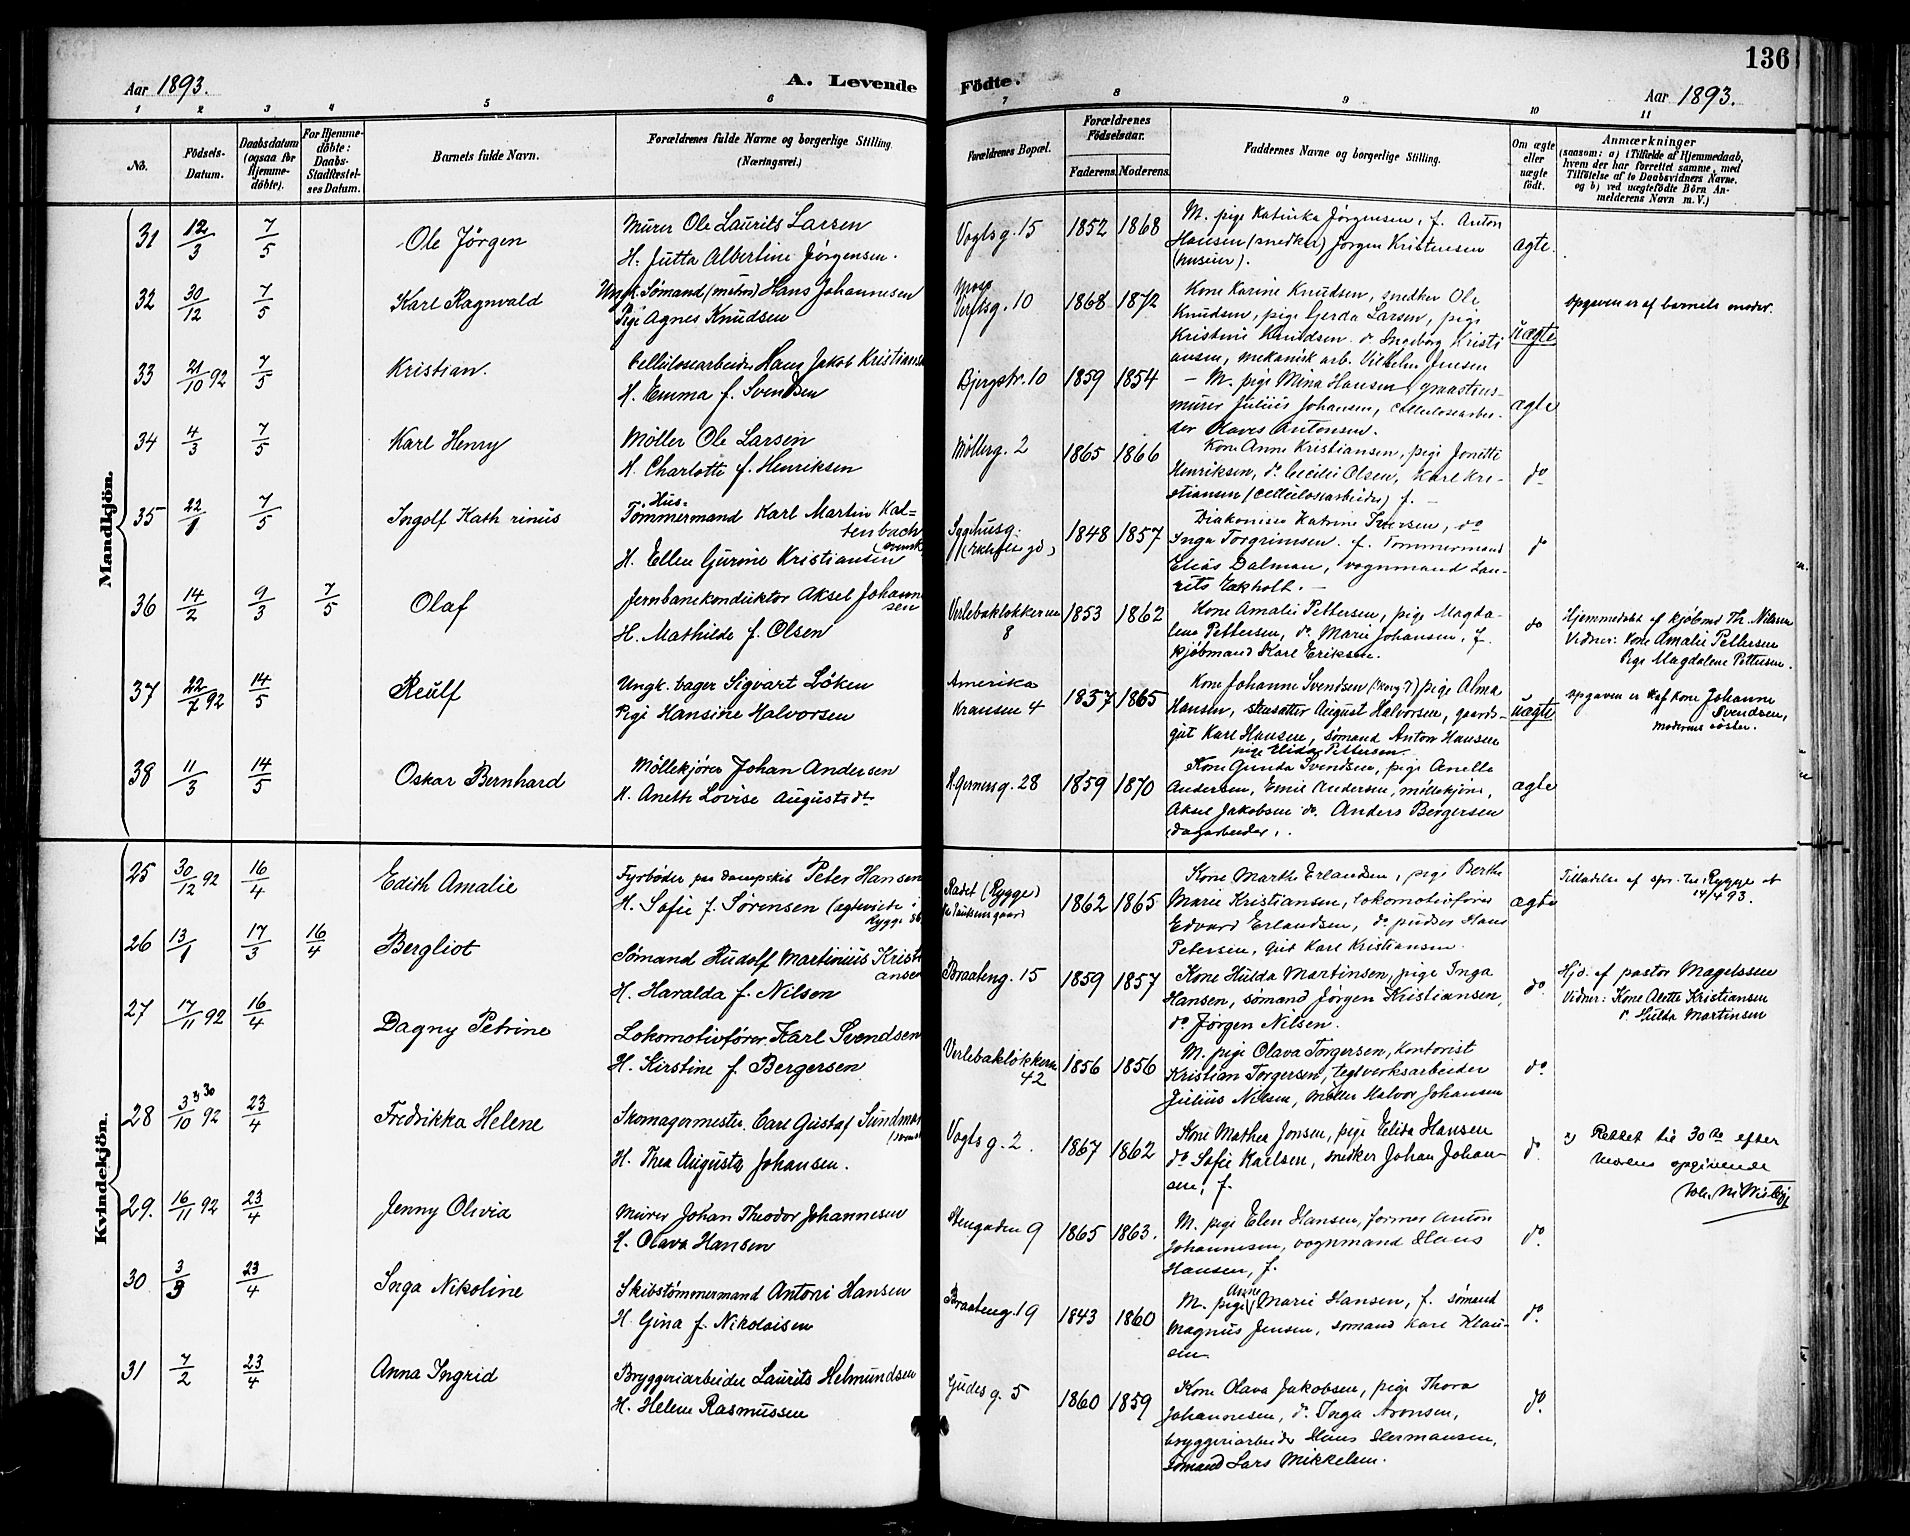 Aar 1893.
A. Levende
Födte.
136
Aar 1893.
1 2 3 4 5 6 7 8 9 10 11
No.
Födsels-
Datum.
Daabsdatum
(ogsaa for
Hjemme-
döbte).
For Hjemme-
döbte:
Daabs-
Stadfæstel-
ses Datum.
Barnets fulde Navn.
Forældrenes fulde Navne og borgerlige Stilling.
(Næringsvei.)
Forældrenes Bopæl.
Forældrenes
Födselsaar.
Faderens. Moderens.
Faddernes Navne og borgerlige Stilling.
Om ægte
eller
uægte
födt.
Anmærkninger
(saasom: a) i Tilfælde af Hjemmedaab,
hvem der har forrettet samme, med
Tilföielse af to Daabsvidners Navne,
og b) ved uægtefödte Börn An-
melderens Navn m. V.)
Mandkjön.
31 12/3 7/5 Ole Jörgen
Murer Ole Laurits Larsen
H. Jutta Albertine Jörgensen.
Vogtsg. 15 1852 1868
M. pige Katinka Jörgensen, f. Anton
Hansen (snedker) Jörgen Kristensen
(murer).
ægte.
32 30/12 7/5 Karl Ragnvald
Ungk. Sömand (matros) Hans Johannesen
Pige Agnes Knudsen
Moss
Verftsg. 10 1868 1872
Kone Karine Knudsen, snedker Ole
Knudsen, pige Gerda Larsen, pige
Kristine Knudsen do Ingeborg Kristi
ansen, mekanisk arb. Vilhelm Jensen
uægte
opgaven er af barnets moder.
33 21/10 92 7/5 Kristian.
Cellulosearbeider Hans Jakob Kristiansen
H. Emma f. Svendsen
Bjergstr. 10 1859 1854
– M. pige Mina Hansen, graastens-
murer Julius Johansen, cellulosearbei-
der Olaves Antonsen.
ægte
34 4/3 7/5 Karl Henry
Möller Ole Larsen
H. Charlotte f. Henriksen
Möllerg. 2 1865 1866
Kone Anne Kristiansen, pige Jonette
Henriksen, do Cecilie Olsen, Karl Kri-
stiansen (cellulosearbeider) f. –
do
35 22/1 7/5 Ingolf Kathrinus
Hus-
Tömmermand Karl Martin Kal-
tenbach
(svensk)
H. Ellen Gurine Kristiansen
Sygehusg.
1848 1857
Diakonisse Katrine Iversen, do
Inga Torgrimsen. f. Tömmermand
Elias Dalman, vognmand Lau-
rits Eekholt. –
do
36 14/2 9/3 7/5 Olaf
Jernbanekonduktör Aksel Johanne
sen
H. Mathilde f. Olsen
Verlebaklökkerne
8 1853 1862
Kone Amalie Pettersen, pige Magda-
lene Pettersen, do Marie Johansen, f.
kjöbmand Karl Eriksen.
do
Hjemmedöbt af kjöbmd Th. Nilsen
Vidner: Kone Amalie Pettersen
Pige Magdalene Pettersen.
37 22/7 92 14/5 Reulf
Ungk. bager Sigvart Löken
Pige Hansine Halvorsen
Amerika
Kransen 4 1857 1865
Kone Johanne Svendsen pige Alma
Hansen, stusatter August Halvorsen, gaards-
gut Karl Hansen, sömand Anton Hansen
pige Elida Pettersen
uægte
opgaven er af kone Johanne
Svendsen,
moderens söster.
38 11/3 14/5 Oskar Bernhard
Möllekjörer Johan Andersen
H. Aneth Lovise Augustsdtr
H. Gernersg. 28 1859 1870
Kone Gunda Svendsen, pige Anette
Andersen, Emil Andersen, möllekjörer,
Aksel Jakobsen do. Anders Bergersen
dagarbeider.
ægte
Kvindekjön.
25 30/12 92 16/4 Edith Amalie
Fyrböder paa dampskib Peter Hansen
H. Sofie f. Sörensen (ægteviede i
Rygge
Radet (Rygge)
1862 1865
Kone Marthe Erlandsen, pige Berthe
Marie Kristiansen, lokomotivförer
Edvard Erlandsen, do pudser Hans
Petersen, gut Karl Kristiansen.
ægte
Tilladelse af spr. til Rygge at
14/4 93.
26 13/1 17/3 16/4 Bergliot
Sömand Rudolf Martinius Kristi
ansen
H. Haralda f. Nilsen
Braateng. 15 1859 1857
Kone Hulda Martinsen, pige Inga
Hansen, sömand Jörgen Kristiansen,
do Jörgen Nilsen.
do.
Hjd. af pastor Magelssen
Vidner: Kone Alette Kristiansen
do Hulda Martinsen
27 17/11 92 16/4 Dagny Petrine
Lokomotivförer Karl Svendsen
H. Kirstine f. Bergersen
Verlebaklökkerne
42 1856 1856
M. pige Olava Torgersen, kontorist
Kristian Torgersen, teglverksarbeider
Julius Nilsen, möller Halvor Johansen
do.
28 3/10 x) 30 92 23/4 Fredrikka Helene
Skomagermester Carl Gustaf Sundman
(svensk)
H. Thea Augusta Johansen.
Vogtsg. 2. 1867 1862
Kone Mathea Jonsen, pige Elida Hansen
do Sofie Karlsen, snedker Johan Johan-
sen, f.
do.
x) Rettet til 30te efter
Morens opgivende
29. 16/11 92 23/4 Jenny Olivia
Murer Johan Theodor Johannesen
H. Olava Hansen
Stengaden 9 1865 1863.
M. pige Elen Hansen, former Anton
Johannesen, vognmand Hans
Hansen, f.
do.
30 3/3 23/4 Inga Nikoline
Skibstömmermand Antoni Hansen
H. Gina f. Nikolaisen
Braateng. 19 1843 1860
Anne
M. pige Marie Hansen, f. sömand
Magnus Jensen, sömand Karl Klau-
sen.
do.
31 7/2 23/4 Anna Ingrid
Bryggeriarbeider Laurits Helmundsen
H. Helene Rasmussen
Gudesg. 5 1860 1859
Kone Olava Jakobsen, pige Thora
Johannesen, do. Inga Aronsen,
bryggeriarbeider Hans Hermansen,
Sömand Lars Mikkelsen.
do.